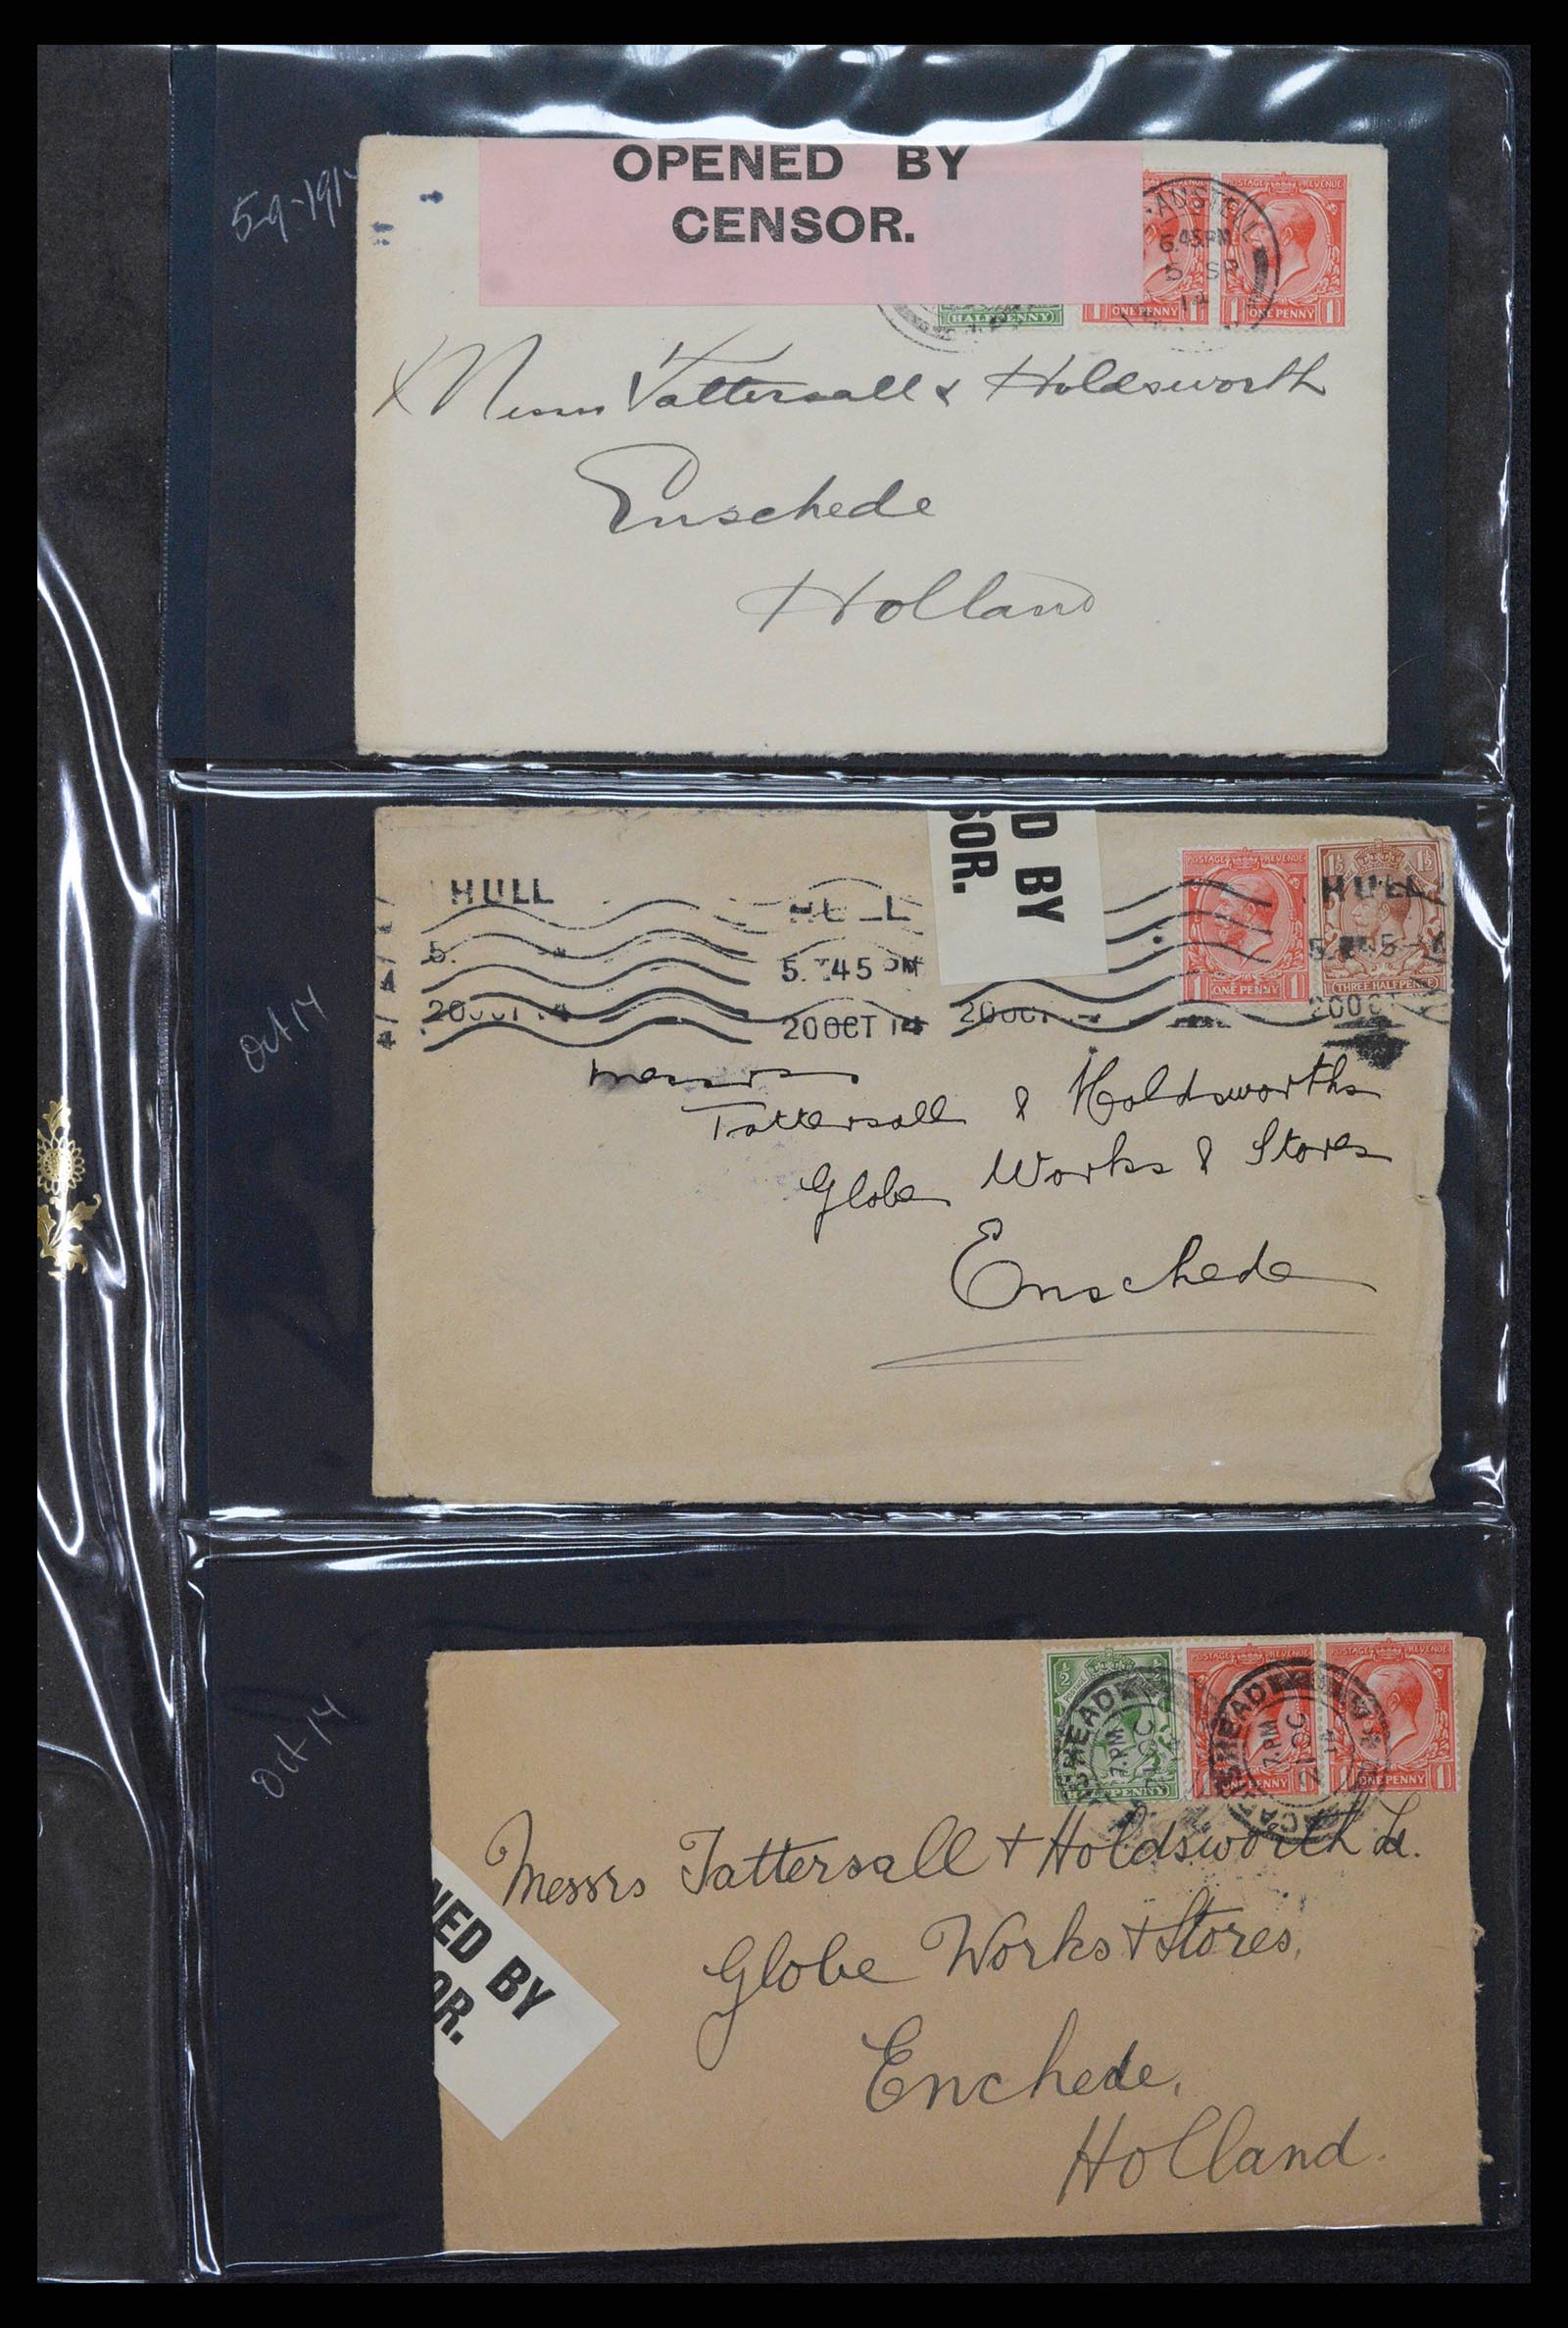 5-9-191
OPENED BY
CENSOR.
AUSTELL
6.45 PM
5 SP
14
POSTAGE REVENUE
HALFPENNY
1 ONE PENNY 1
1 ONE PENNY 1
Messrs Tattersall & Holdsworth
Enschede
Holland
Oct 14
D BY
SOR.
HULL
HULL
HULL
5.45 PM
20 OCT 14
20 OCT 14
20 OCT
POSTAGE REVENUE
1 ONE PENNY 1
THREE HALFPENCE
Messrs
Tattersall & Holdsworths
Globe Works & Stores
Enschede
Oct 14
POSTAGE REVENUE
POSTAGE REVENUE
SHEAD
7. PM
SHEAD
7. PM
21 OC
14
PENNY
ONE PENNY
1 ONE PENNY 1
Messrs Tattersall + Holdsworth Ld.
NED BY
OR.
Globe Works + Stores,
Enchede,
Holland.